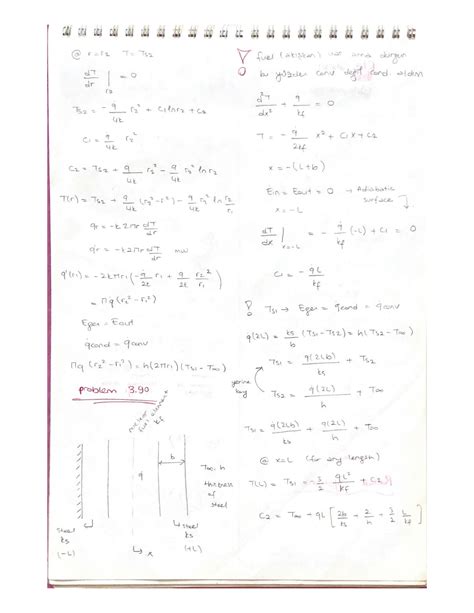 @ x = r2 T = Ts2
dT/dr |r2 = 0
Ts2 = - q̇/4k r2² + C1 ln r2 + C2
C1 = q̇/4k r2²
C2 = Ts2 + q̇/4k r2² - q̇/4k r2² ln r2
T(r) = Ts2 + q̇/4k (r2² - r²) - q̇/4k r2² ln r2/r
qr = -k2πr dT/dr
q'r = -k2πr dT/dr
q'(r1) = -2kπr1 (- q̇/2k r1 + q̇/2k r2²/r1)
= πq̇ (r2² - r1²)
Egen - Eout
q̇cond = q̇conv
πq̇ (r2² - r1²) = h(2πr1)(Ts1 - T∞)
problem 3.90
nuclear
fuel element
kf
b
q̇
T∞, h
thickness
of
steel
steel
ks
(-L)
x
steel
ks
(+L)
d²T/dx² + q̇/kf = 0
T = - q̇/2kf x² + C1x + C2
x = -(L+b)
Ein = Eout = 0 → Adiabatic
surface
x = -L
dT/dx |x=-L = - q̇/kf (-L) + C1 = 0
C1 = - q̇L/kf
Ts1 → Egen = qcond = qconv
q̇(2L) = ks/b (Ts1 - Ts2) = h(Ts2 - T∞)
Ts1 = q̇(2Lb)/ks + Ts2
yerine
koy
Ts2 = q̇(2L)/h + T∞
Ts1 = q̇(2Lb)/ks + q̇(2L)/h + T∞
@ x=L (for any length)
T(L) = Ts1 = - 3/2 q̇L²/kf + C2
C2 = T∞ + q̇L [ 2b/ks + 2/h + 3/2 L/kf ]